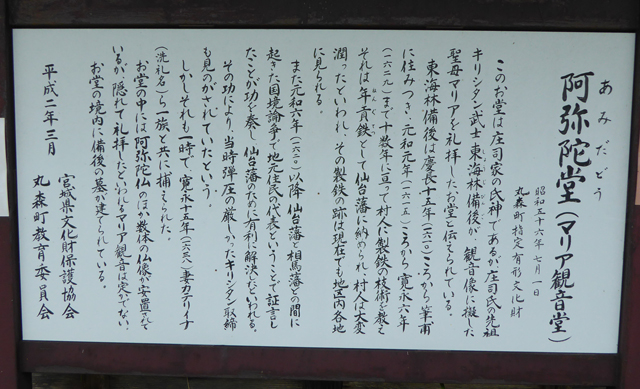 あみだどう
阿弥陀堂(マリア観音堂)
昭和五十六年七月一日
丸森町指定有形文化財
このお堂は庄司家の氏神であるが、庄司氏の先祖
キリシタン武士東海林備後が、観音像に擬した
聖母マリアを礼拝したお堂と伝えられている。
東海林備後は慶長十五年(一六一〇)ころから筆甫
に住みつき、元和元年(一六一五)ころから寛永六年
(一六二九)まで十数年に亘って村人に製鉄の技術を教え
それは年貢鉄として仙台藩に納められ、村人は大変
潤ったといわれ、その製鉄の跡は現在でも地区内各地
に見られる。
また元和六年(一六二〇)以降、仙台藩と相馬藩との間に
起きた国境論争で地元住民の代表ということで証言し
たことが功を奏し、仙台藩のために有利に解決したといわれる。
その功により、当時弾圧の厳しかったキリシタン取締
も見のがされていたという。
しかしそれも一時で、寛永十五年(一六三八)妻カテリイナ
(洗礼名)ら一族と共に捕えられた。
お堂の中には阿弥陀仏のほか数体の仏像が安置されて
いるが、隠れて礼拝したといわれるマリア観音は定かでない。
お堂の境内に備後の墓が建てられている。
平成二年三月
宮城県文化財保護協会
丸森町教育委員会